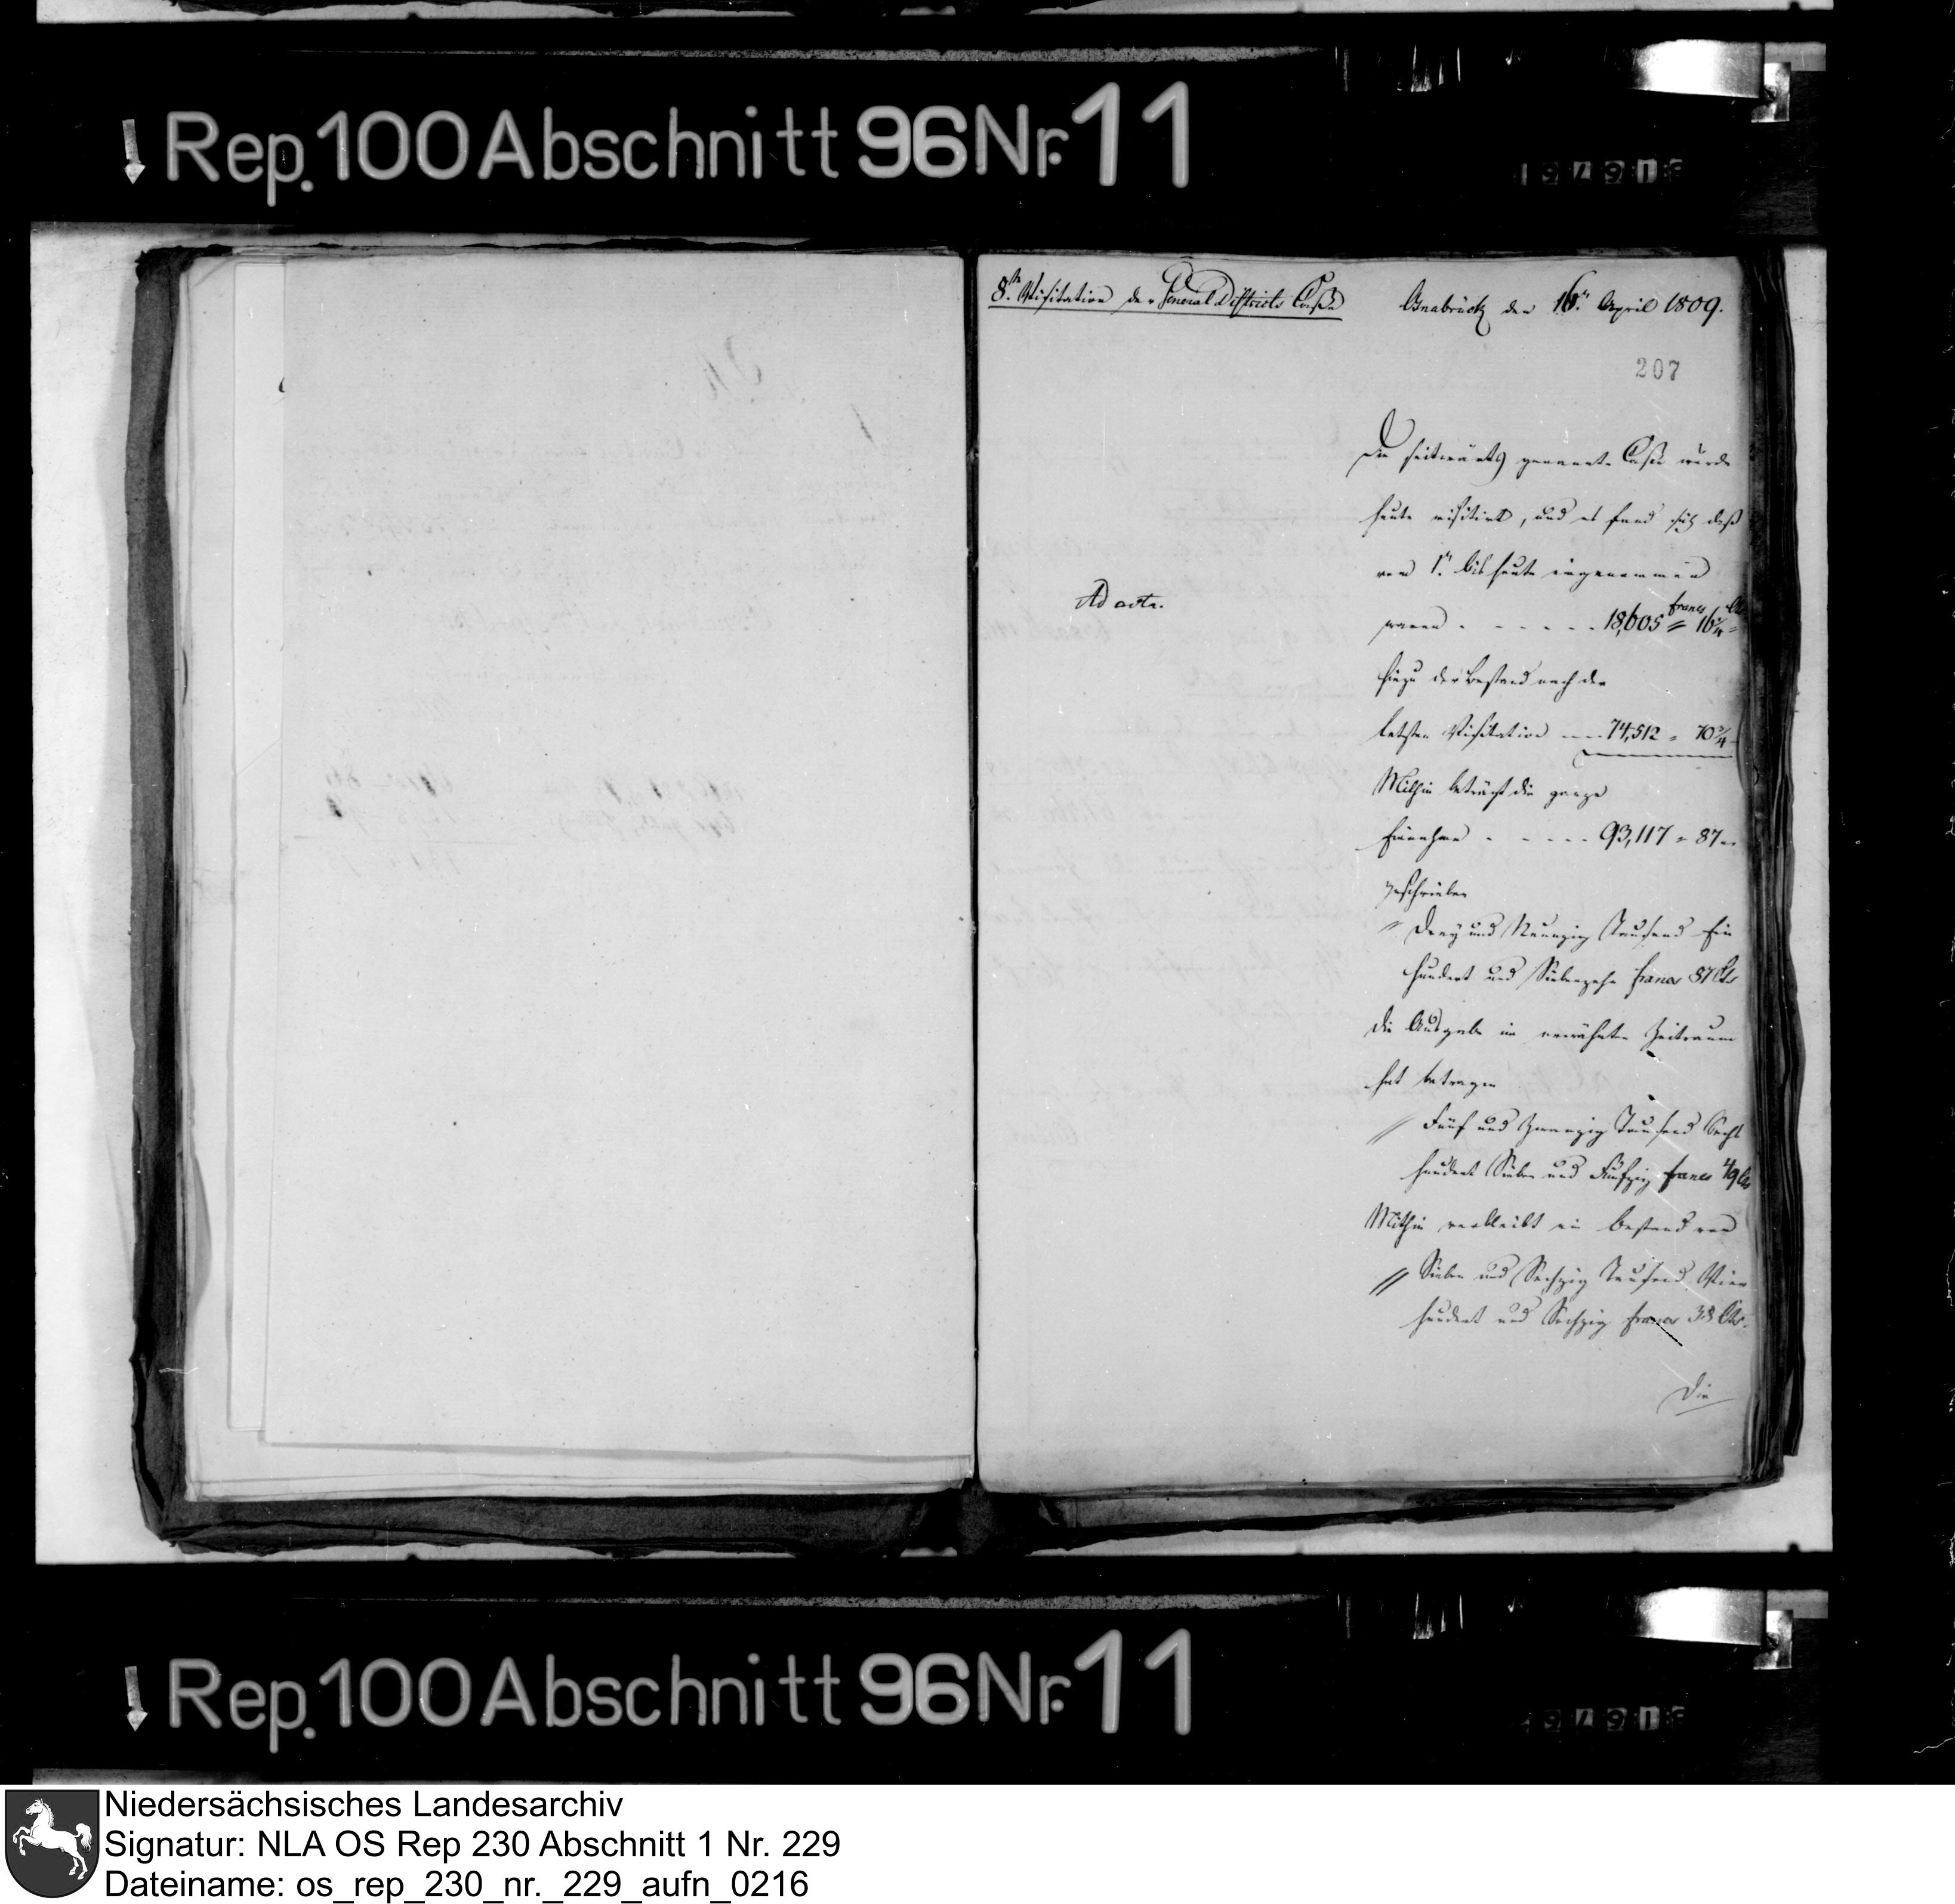 Rep. 100 Abschnitt 96 Nr. 11
8te Visitation der General Districts Casse
Osnabrück den 16ten April 1809.
207
Die seitwärts genannte Casse wurde
heute visitirt, und es fand sich daß
vom 1ten bis heute eingenommen
Ad acta.
waren . - - - - . 18,605 francs 16 1/4 Cts
hiezu der Bestand nach der
letzten Visitation --- 74,512 " 70 3/4
Mithin beträgt die ganze
Einnahme - - - - - 93,117 " 87 "
geschrieben
" Drey und Neunzig Tausend Ein
hundert und Siebenzehn francs 87 Cts
die Ausgabe im erwähnten Zeitraum
hat betragen
" Fünf und Zwanzig Tausend Sechs
hundert Sieben und Funfzig francs 49 Cts
Mithin verbleibt ein Bestand von
" Sieben und Sechzig Tausend Vier
hundert und Sechzig francs 38 Cts.
Die
Rep. 100 Abschnitt 96 Nr. 11
Niedersächsisches Landesarchiv
Signatur: NLA OS Rep 230 Abschnitt 1 Nr. 229
Dateiname: os_rep_230_nr._229_aufn_0216